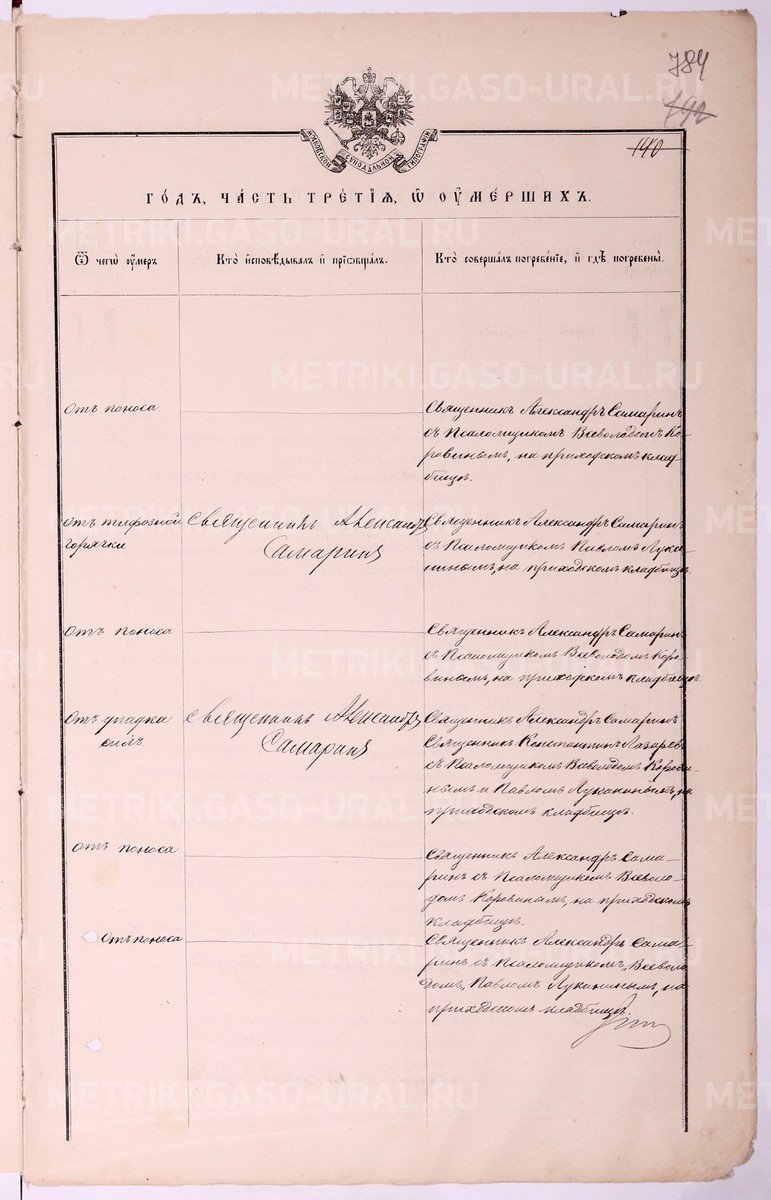 784
792
140
МОСКОВСКОЙ СѴНОДАЛЬНОЙ ТИПОГРАФІИ
ГО́ДЪ, ЧА́СТЬ ТРЕ́ТІѦ, Ѡ҆ ОУ҆МЕ́РШИХЪ.
Ѿ чегѡ̀ оу҆́меръ
Кто̀ и҆сповѣ́дывалъ и҆ прїѡбща́лъ.
Кто̀ соверша́лъ погребе́нїе, и҆ гдѣ̀ погребены̀.
Отъ поноса
Священникъ Александръ Самаринъ
съ Псаломщикомъ Всеволодомъ Ко-
ровинымъ, на приходскомъ клад-
бищѣ.
Отъ тифозной
горячки
Священникъ Александръ
Самаринъ
Священникъ Александръ Самаринъ
съ Псаломщикомъ Павломъ Лука-
нинымъ, на приходскомъ кладбищѣ.
Отъ поноса
Священникъ Александръ Самаринъ
съ Псаломщикомъ Всеволодомъ Коро-
винымъ, на приходскомъ кладбищѣ.
Отъ упадка
силъ.
Священникъ Александръ
Самаринъ
Священникъ Александръ Самаринъ
Священникъ Константинъ Лазаревъ
съ Псаломщикомъ Всеволодомъ Корови-
нымъ и Павломъ Луканинымъ, на
приходскомъ кладбищѣ.
Отъ поноса
Священникъ Александръ Сама-
ринъ съ Псаломщикомъ Всеволо-
домъ Коровинымъ, на приходскомъ
кладбищѣ.
Отъ поноса
Священникъ Александръ Сама-
ринъ съ Псаломщикомъ, Всеволо
домъ, Павломъ Луканинымъ, на
приходскомъ кладбищѣ.
METRIKI.GASO-URAL.RU